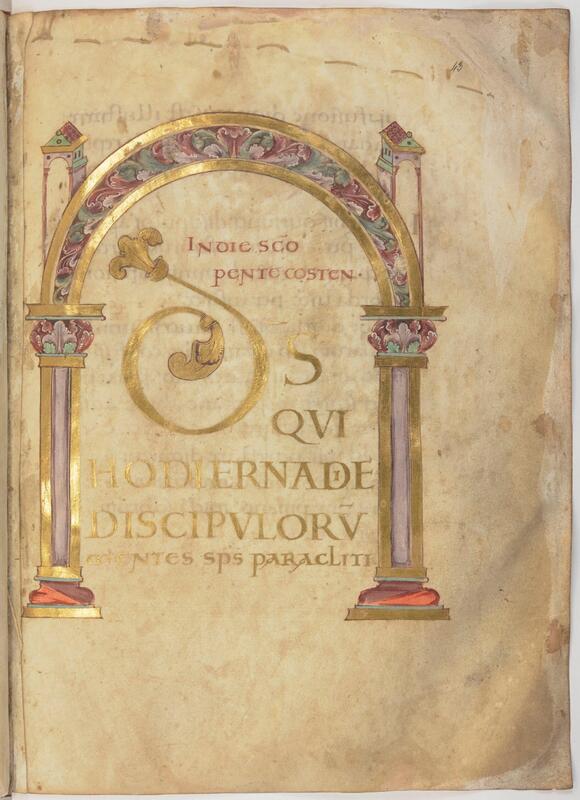 43
INDIE SC̄O
PENTECOSTEN ·
D̄S
QVI
HODIERNA DIE
DISCIPVLORV̄
MENTES SPS̄ PARACLITI